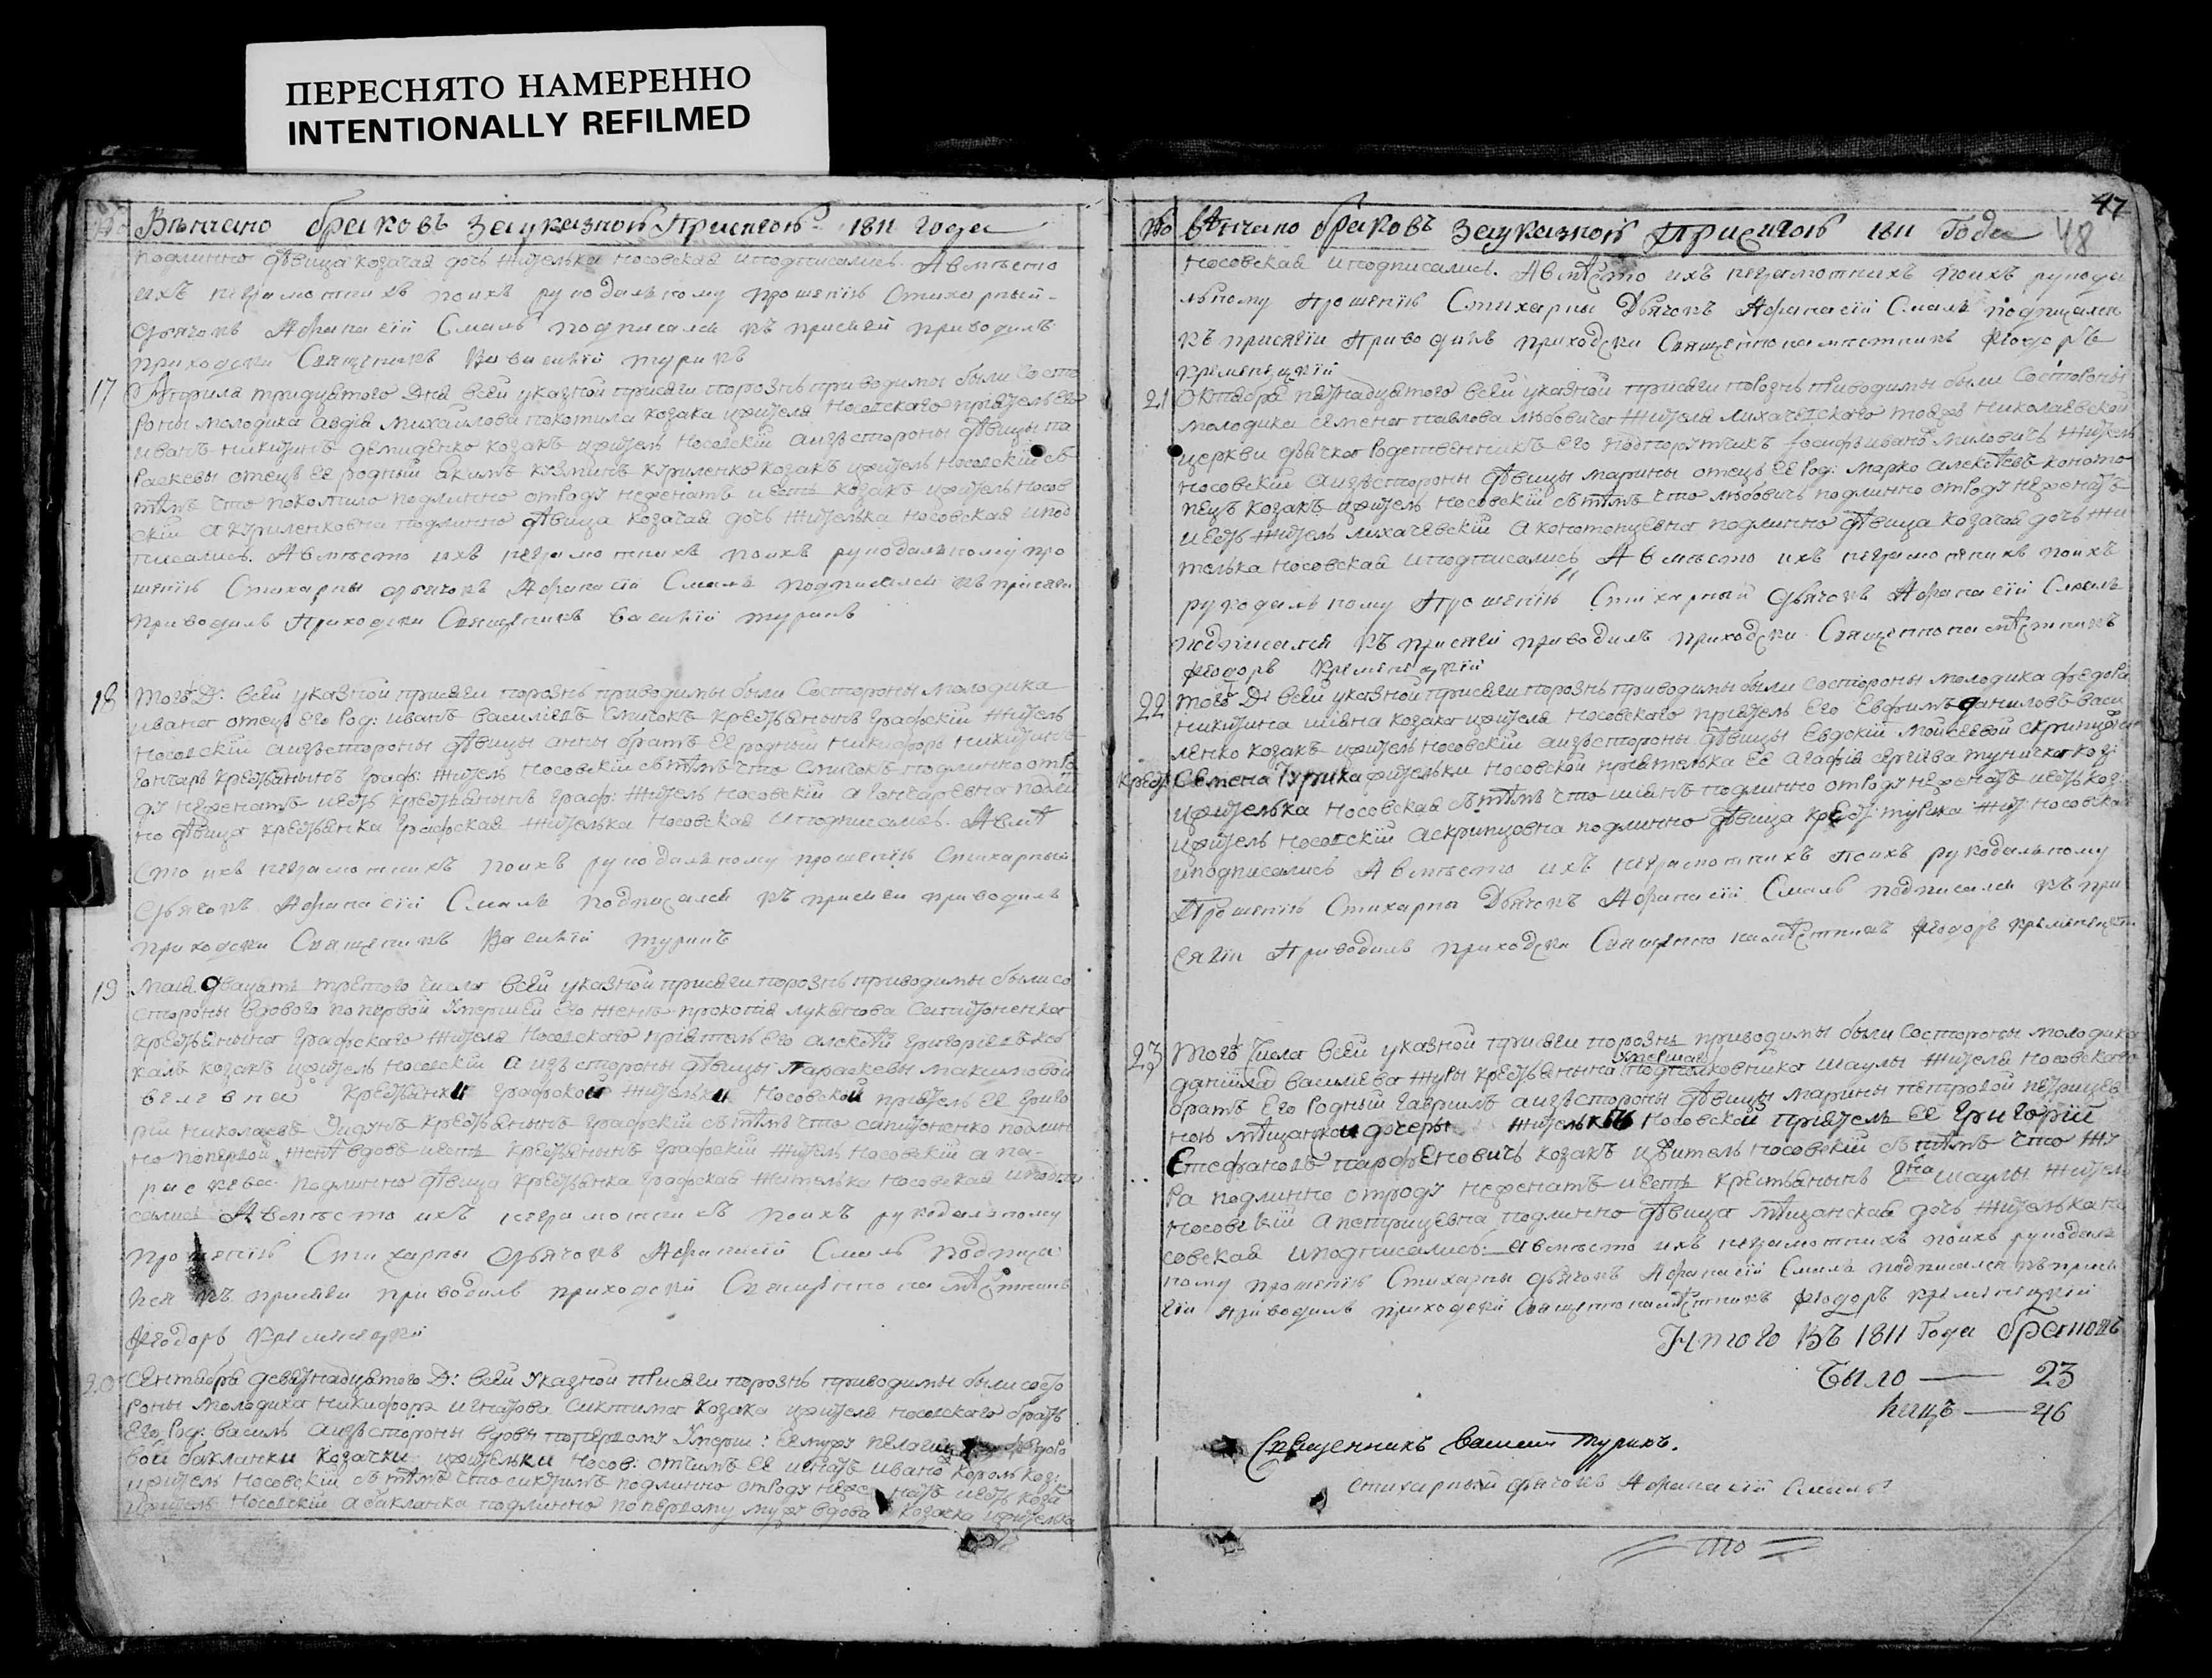 ПЕРЕСНЯТО НАМЕРЕННО
INTENTIONALLY REFILMED
№ Вѣнчано браковъ зауказной Присягой 1811 года
подлинно дѣвица козачая дочь жителька носовская иподписались. Авмѣсто
ихъ неграмотнихъ поихъ рукодальному прошенію Стихарный
дьячокъ Афанасій Смаль подписался къ присягѣ приводилъ
приходски Священикъ Василій турикъ
17 Априля тридцятого Дня всей указной присяги порознь приводимы были Состо
роны молодика авдія михайлова покотила козака ижителя Носовского пріятель его
иванъ никитинъ демиденко козакъ ижитель Носовскій аизъстороны дѣвицы па
раскевы отецъ ее родный акимъ кузминъ куриленко козакъ ижитель носовскій съ
тѣмъ что покотило подлинно отроду неженатъ иесть козакъ ижитель носов
скій акуриленковна подлинно дѣвица козачая дочь жителька носовская ипод
писались. Авмѣсто ихъ неграмотнихъ поихъ рукодальному про
шенію Стихарны дьячокъ Афанасій Смаль подписался къ присяги
приводилъ Приходски Священикъ василій турикъ
18 того Д: всей указной присяги порознь приводимы были Состороны молодика
ивана отецъ его Род: иванъ василіевъ Смичокъ крестьянынъ графскій житель
носовскій аизъстороны дѣвицы анны братъ ее родный никифоръ никитинъ
гончаръ крестьянынъ граф: житель носовскій сътѣмъ что Смичокъ подлинно отро
ду неженатъ иесть крестьянынъ граф: житель носовскій а гончаревна подлин
но дѣвица крестьянка графская жителька носовская иподписались. Авмѣ
сто ихъ неграмотнихъ поихъ рукодальному прошенію Стихарный
Дьячокъ Афанасій Смаль подписался къ присяги приводилъ
приходски Священикъ Василій турикъ
19 Мая двацать третого числа всей указной присяги порознь приводимы были со
стороны вдового попервой умершей его женѣ прокопія лукянова Сапитоненка
крестьянына графского жителя Носовского пріятель его алексѣй григоріевъ
козакъ ижитель Носовскій а изъ стороны дѣвицы Параскевы максимовой
крестьянки графской жительки Носовской пріятель ее григо
рій николаевъ крестьянынъ графскій сътѣмъ что сапитоненко подлин
но попервой женѣ вдовъ иесть крестьянынъ графскій житель носовскій а па-
раскева подлинно дѣвица крестьянка графская жителька носовская иподпи
сались Авмѣсто ихъ неграмотнихъ поихъ рукодальному
прошенію Стихарны Дьячокъ Афанасій Смаль подписа
лся къ присяги приводилъ приходскій Священнонамѣстникъ
Феодоръ Кременецкій
20 Сентября девятнадцятого Д: всей указной присяги порознь приводимы были состо
роны молодика никифора игнатова Сиктима козака ижителя носовского братъ
его Род: василь аизъстороны вдовы попервому умерш: ее мужу пелагіи федоро
вой бакланки козачки ижительки носов: отчимъ ее игнатъ ивановъ король коз:
ижитель носовскій сътѣмъ что сиктимъ подлинно отроду неженатъ иесть коза
ижитель Носовскій абакланка подлинно попервому мужу вдова козачка ижителька
47
48
№ Вѣнчано браковъ зауказной Присягой 1811 Года
носовская иподписались. Авмѣсто ихъ неграмотнихъ поихъ рукода
льному Прошенію Стихарны Дьячокъ Афанасій Смаль подписался
къ присягіи Приводилъ приходски Священнонамѣстникъ Феодоръ
Кременецкій
21 Октября пятнадцятого всей указной присяги порознь приводимы были Состороны
молодика семена павлова любовича жителя лихачевского тоеяжъ николаевской
церкви дьячка Родственникъ его поручикъ Іосифъ ивановъ миловичъ житель
носовскій аизъстороны дѣвицы марины отецъ ее Род: марко алексѣевъ коното
пецъ козакъ ижитель Носовскій сътѣмъ что любовичъ подлинно отроду неженатъ
иесть житель лихачевскій а конотопцевна подлинно дѣвица козачая дочь жи
телька носовская иподписались Авмѣсто ихъ неграмотнихъ поихъ
рукодальному Прошенію Стихарный дьячокъ Афанасій Смаль
подписался къ присягіи приводилъ приходски Священнонамѣстникъ
Феодоръ Кременецкій
22 того Д: всей указной присяги порознь приводимы были состороны молодика федора
никитина шіяна козака ижителя носовского пріятель его Евфимъ даниловъ васи
ленко козакъ ижитель носовскій аизъстороны дѣвицы Евдокіи Мойсеевой скрипцовны
крест: Семена Турика жительки носовской пріятелька ее агафія сергіева туничка коз:
ижителька носовская сътѣмъ что шіянъ подлинно отроду неженатъ иесть коз:
ижитель Носовскій аскрипцовна подлинно дѣвица крест: турика жит: носовская
иподписались Авмѣсто ихъ неграмотнихъ поихъ рукодальному
Прошенію Стихарны Дьячокъ Афанасій Смаль подписался къ при
сягіи Приводилъ приходски Священнонамѣстникъ Феодоръ Кременецкій
23 того Числа всей указной присяги порознь приводимы были Состороны молодика
умершаго
даніила василіева журы крестьянына подполковника шаулы жителя носовского
братъ его Родный гаврилъ аизъстороны дѣвицы марины петровой петрицев
ной мѣщанской дочеры жительки носовской пріятель ее григорій
Стефановъ парфеновичъ козакъ ижитель носовскій сътѣмъ что жу
ра подлинно отроду неженатъ иесть крестьянынъ гна шаулы житель
носовскій апетрицевна подлинно дѣвица мѣщанская дочь жителька но
совская иподписались. авмѣсто ихъ неграмотнихъ поихъ рукодаль
ному прошенію Стихарны дьячокъ Афанасій Смаль подписался къ прися
гіи приводилъ приходскій Священнонамѣстникъ Феодоръ Кременецкій
Итого Въ 1811 Года браковъ
Было — 23
лицъ — 46
Священникъ Василій Турикъ.
стихарный дьячокъ Афанасій Смаль